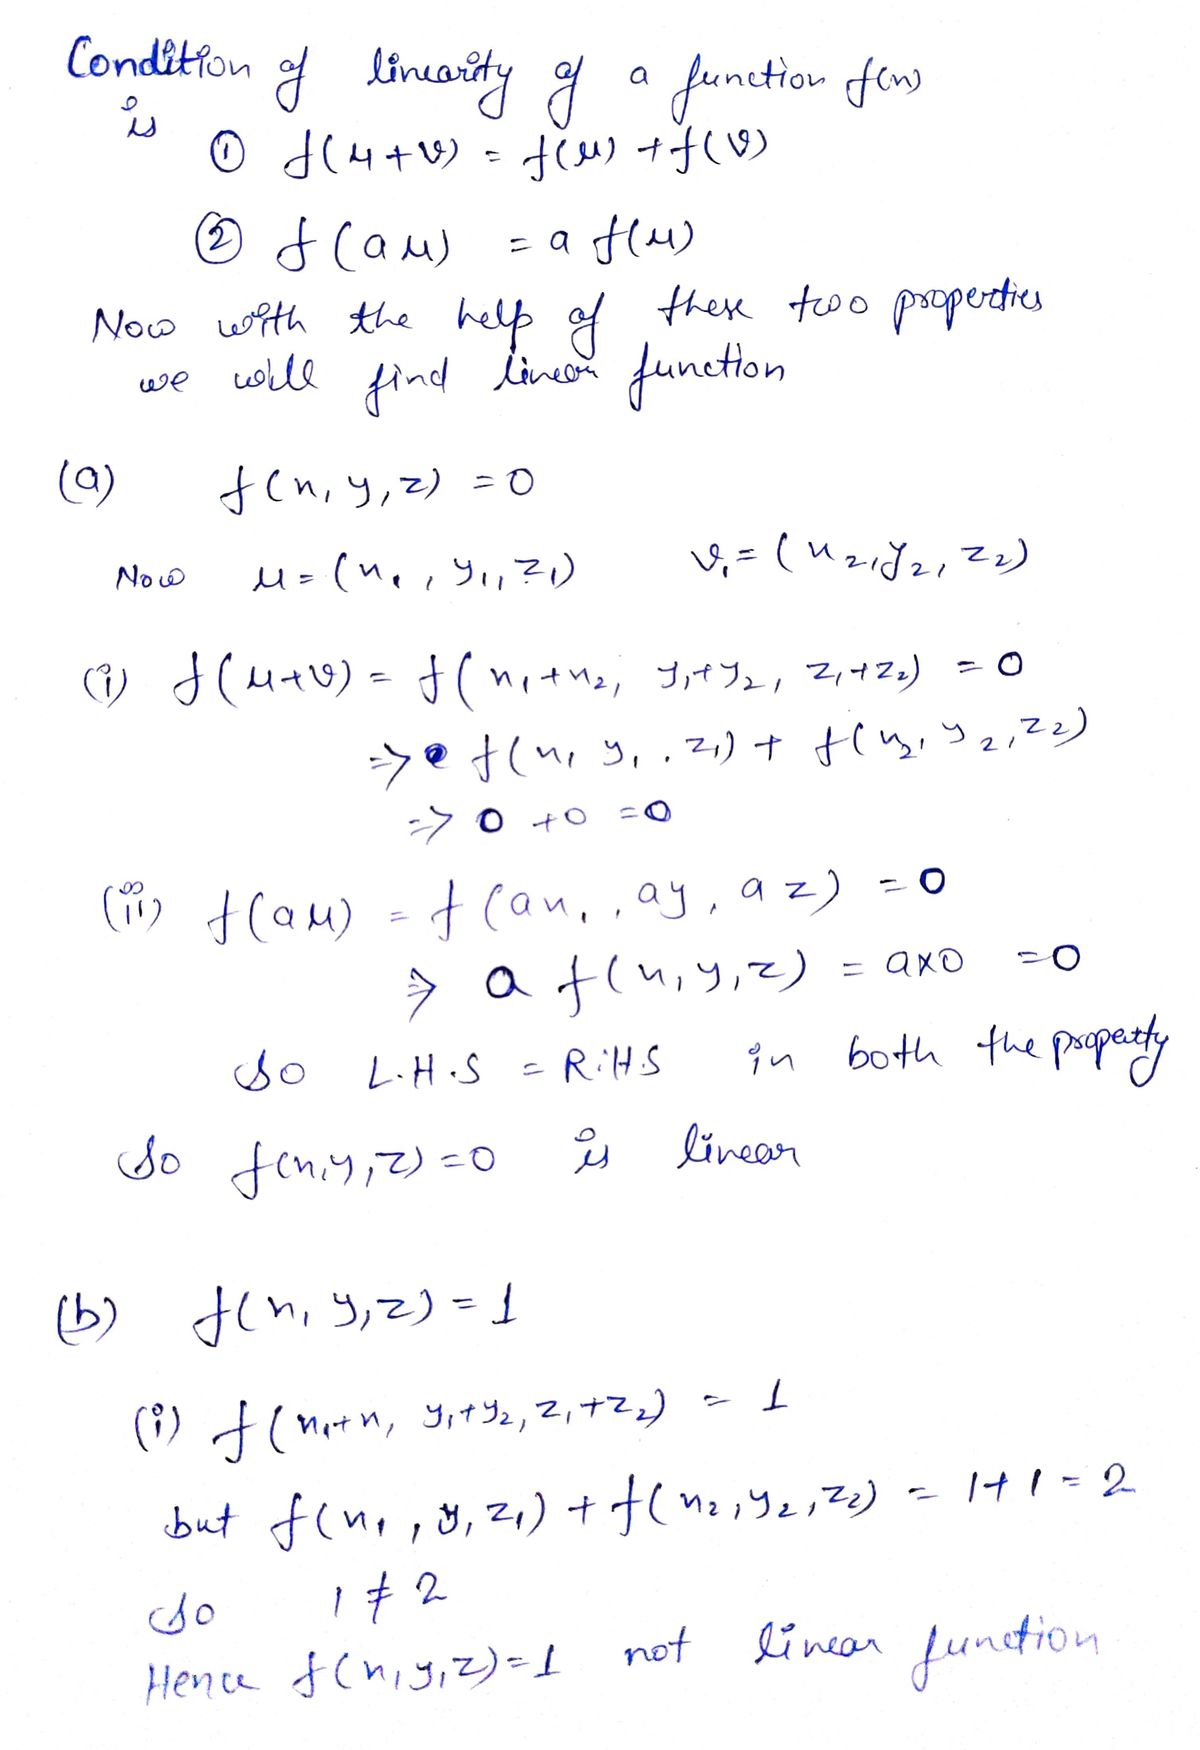 Condition of linearity of a function f(n)
is
① f(u+v) = f(u) + f(v)
② f(au) = a f(u)
Now with the help of these two properties
we will find linear function
(a) f(n, y, z) = 0
Now u = (n₁, y₁, z₁) v₁ = (n₂, y₂, z₂)
(i) f(u+v) = f(n₁+n₂, y₁+y₂, z₁+z₂) = 0
=> f(n₁ y₁, z₁) + f(n₂, y₂, z₂)
=> 0 + 0 = 0
(ii) f(au) = f(an, ay, az) = 0
=> a f(n, y, z) = a×0 = 0
So L.H.S = R.H.S in both the property
So f(n, y, z) = 0 is linear
(b) f(n, y, z) = 1
(i) f(n₁+n, y₁+y₂, z₁+z₂) = 1
but f(n₁, y, z₁) + f(n₂, y₂, z₂) = 1+1 = 2
So 1 ≠ 2
Hence f(n, y, z) = 1 not linear function